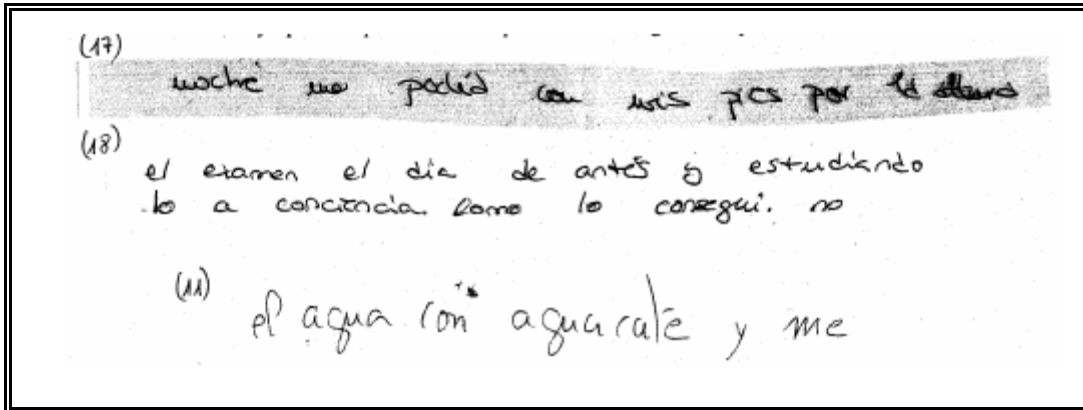 (17)
noche no podía con mis pies por la
(18)
el examen el dia de antes y estudiando
lo a conciencia. Como lo consegui. no
(11)
el agua con aguacate y me